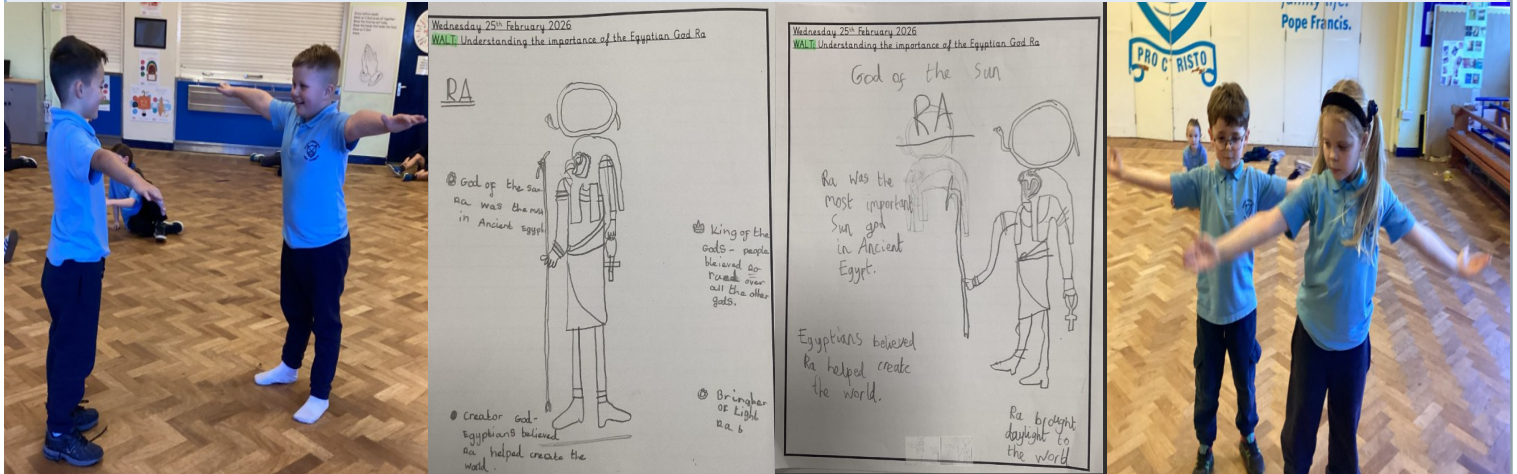 Wednesday 25th February 2026
WALT: Understanding the importance of the Egyptian God Ra
RA
God of the sun
Ra was the most
in Ancient Egypt
King of the
Gods - people
bleieved
over
all the other
gods.
Creator God-
Egyptians believed
Ra helped create the
world.
Bringher
of Light
Ra b
Wednesday 25th February 2026
WALT: Understanding the importance of the Egyptian God Ra
God of the Sun
RA
Ra was the
most important
Sun god
in Ancient
Egypt.
Egyptians believed
Ra helped create
the world.
Ra brought
daylight to
the world
PRO C RISTO
family life.
Pope Francis.